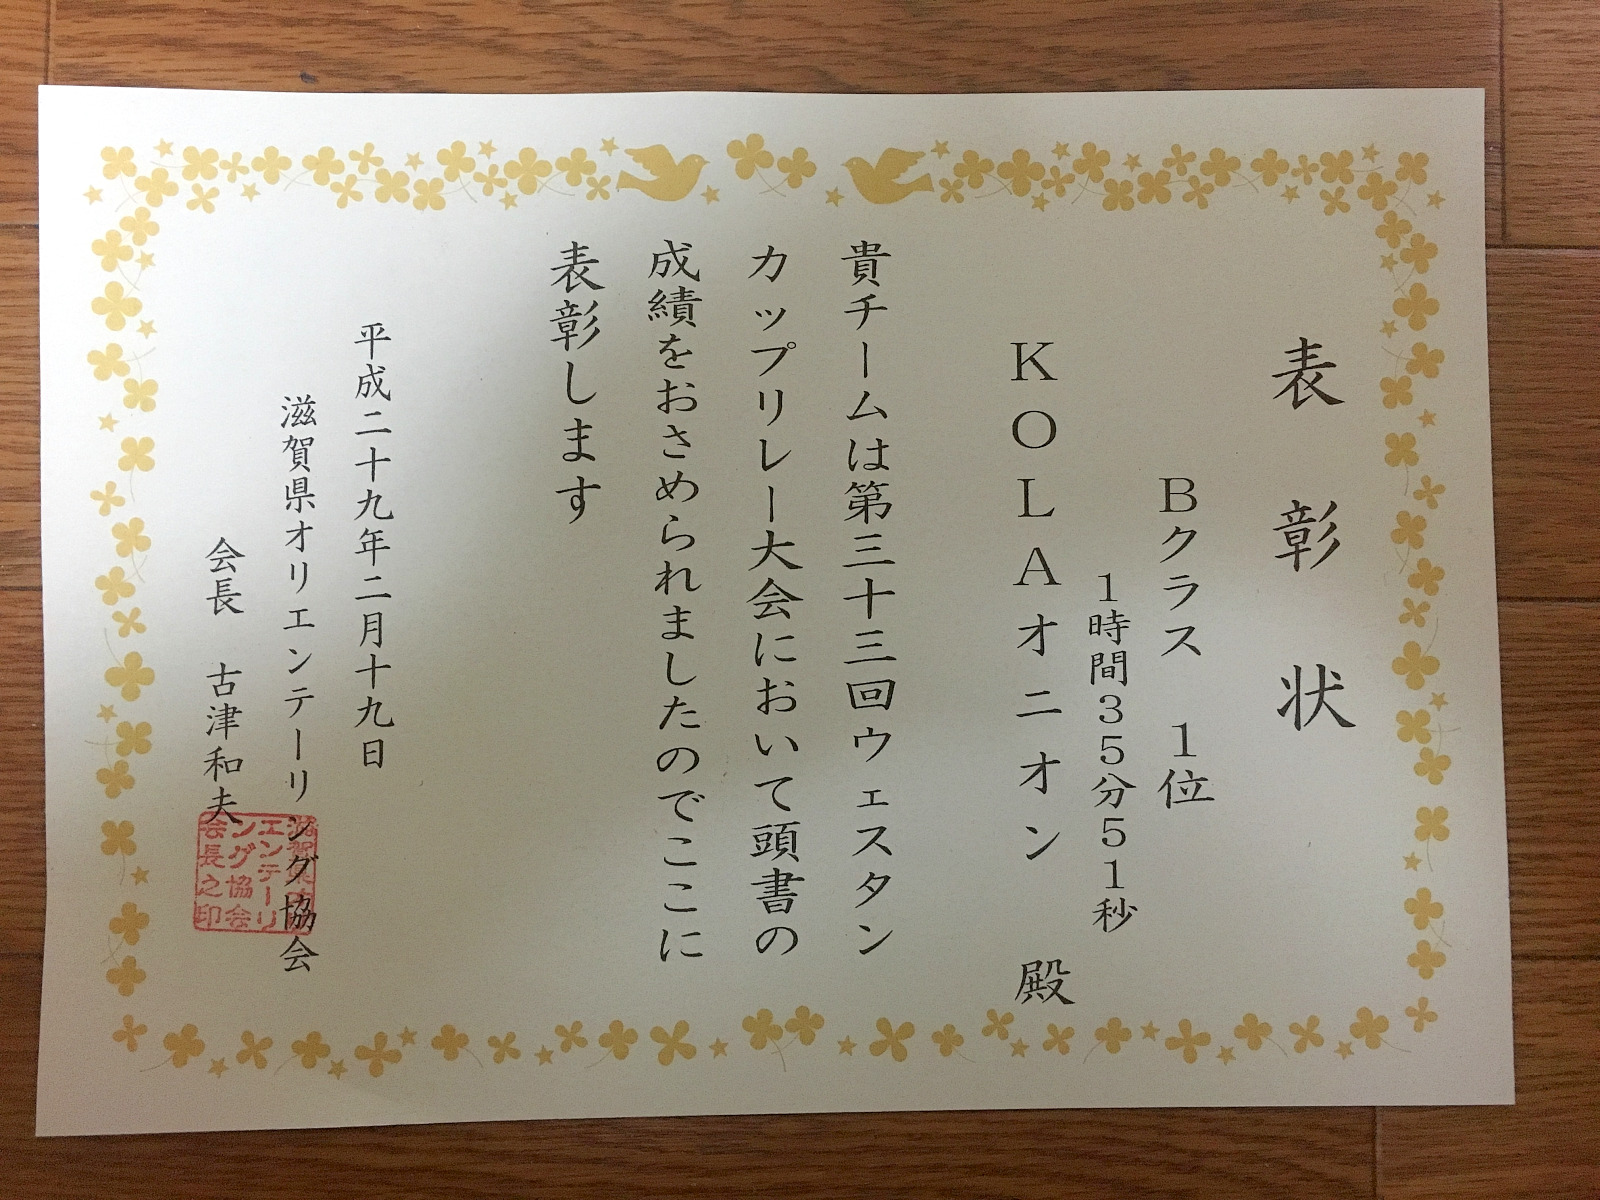 表彰状
Bクラス　1位
1時間35分51秒
KOLAオニオン　殿
貴チームは第三十三回ウェスタン
カップリレー大会において頭書の
成績をおさめられましたのでここに
表彰します
平成二十九年二月十九日
滋賀県オリエンテーリング協会
会長　古津和夫
滋賀県オリ
エンテーリ
ング協会
会長之印